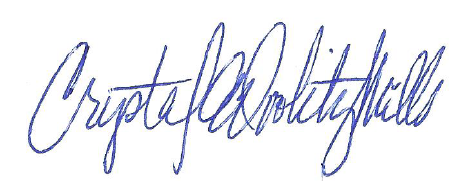 Crystal Doolity Mills